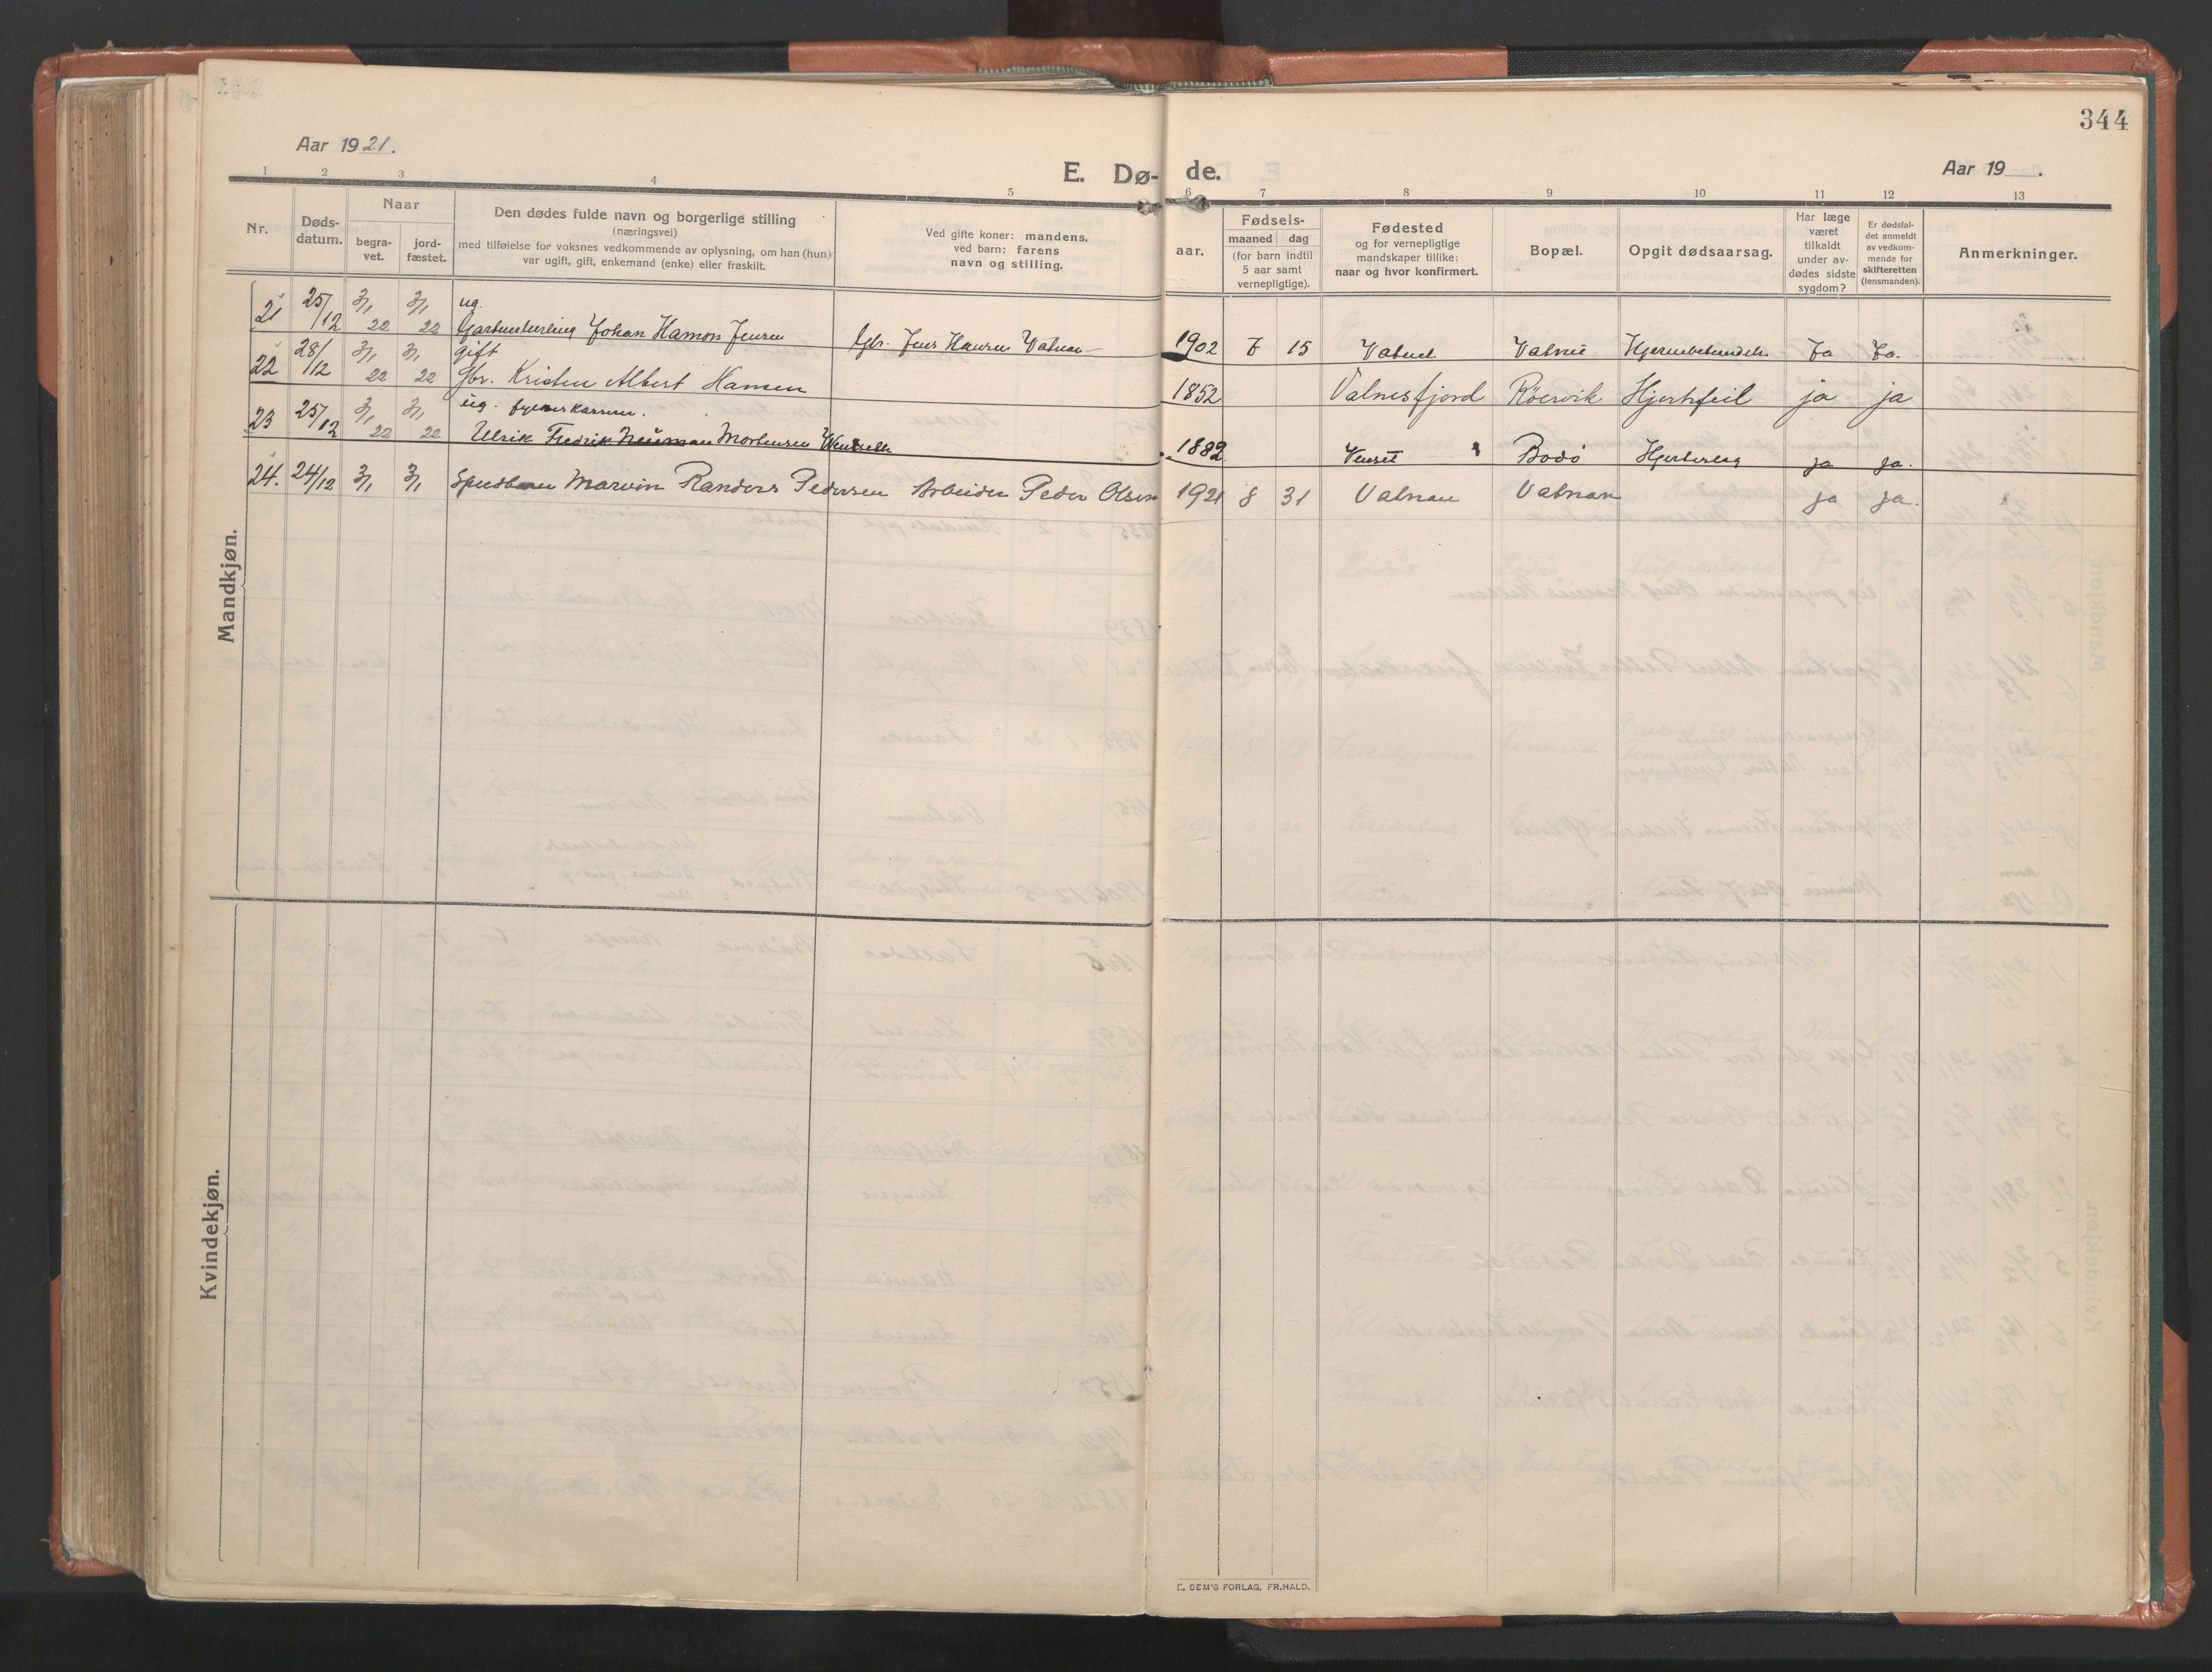 344
Aar 1921.
E. Dø- de.
Aar 19 .
1 2 3 4 5 6 7 8 9 10 11 12 13
Nr.
Døds-
datum.
Naar
begra-
vet.
jord-
fæstet.
Den dødes fulde navn og borgerlige stilling
(næringsvei)
med tilføielse for voksnes vedkommende av oplysning, om han (hun)
var ugift, gift, enkemand (enke) eller fraskilt.
Ved gifte koner: mandens,
ved barn: farens
navn og stilling.
aar.
Fødsels-
maaned dag
(for barn indtil
5 aar samt
vernepligtige).
Fødested
og for vernepligtige
mandskaper tillike:
naar og hvor konfirmert.
Bopæl.
Opgit dødsaarsag.
Har læge
været
tilkaldt
under av-
dødes sidste
sygdom?
Er dødsfal-
det anmeldt
av vedkom-
mende for
skifteretten
(lensmanden).
Anmerkninger.
Mandkjøn.
21 25/12 3/1 22 3/1 22 ug.
Johan Hamon Jensen Gbr. Jens Hansen Vatnan 1902 7 15 Ja Ja.
22 28/12 3/1 22 3/1 22 gift
Gbr. Kristen Albert Hansen 1852 Valnesfjord Röervik Hjertefeil ja ja
23 25/12 3/1 22 3/1 22 ug.
Ulrik Fredrik Neuman Mortensen 1882 Venset Bodö Hjerteslag ja ja.
24. 24/12 3/1 3/1 Spedbarn Marvin Randers Pedersen Arbeider Peder Olsen 1921 8 31 Vatnan Vatnan ja ja.
Kvindekjøn.
E. SEM'S FORLAG, FR.HALD.